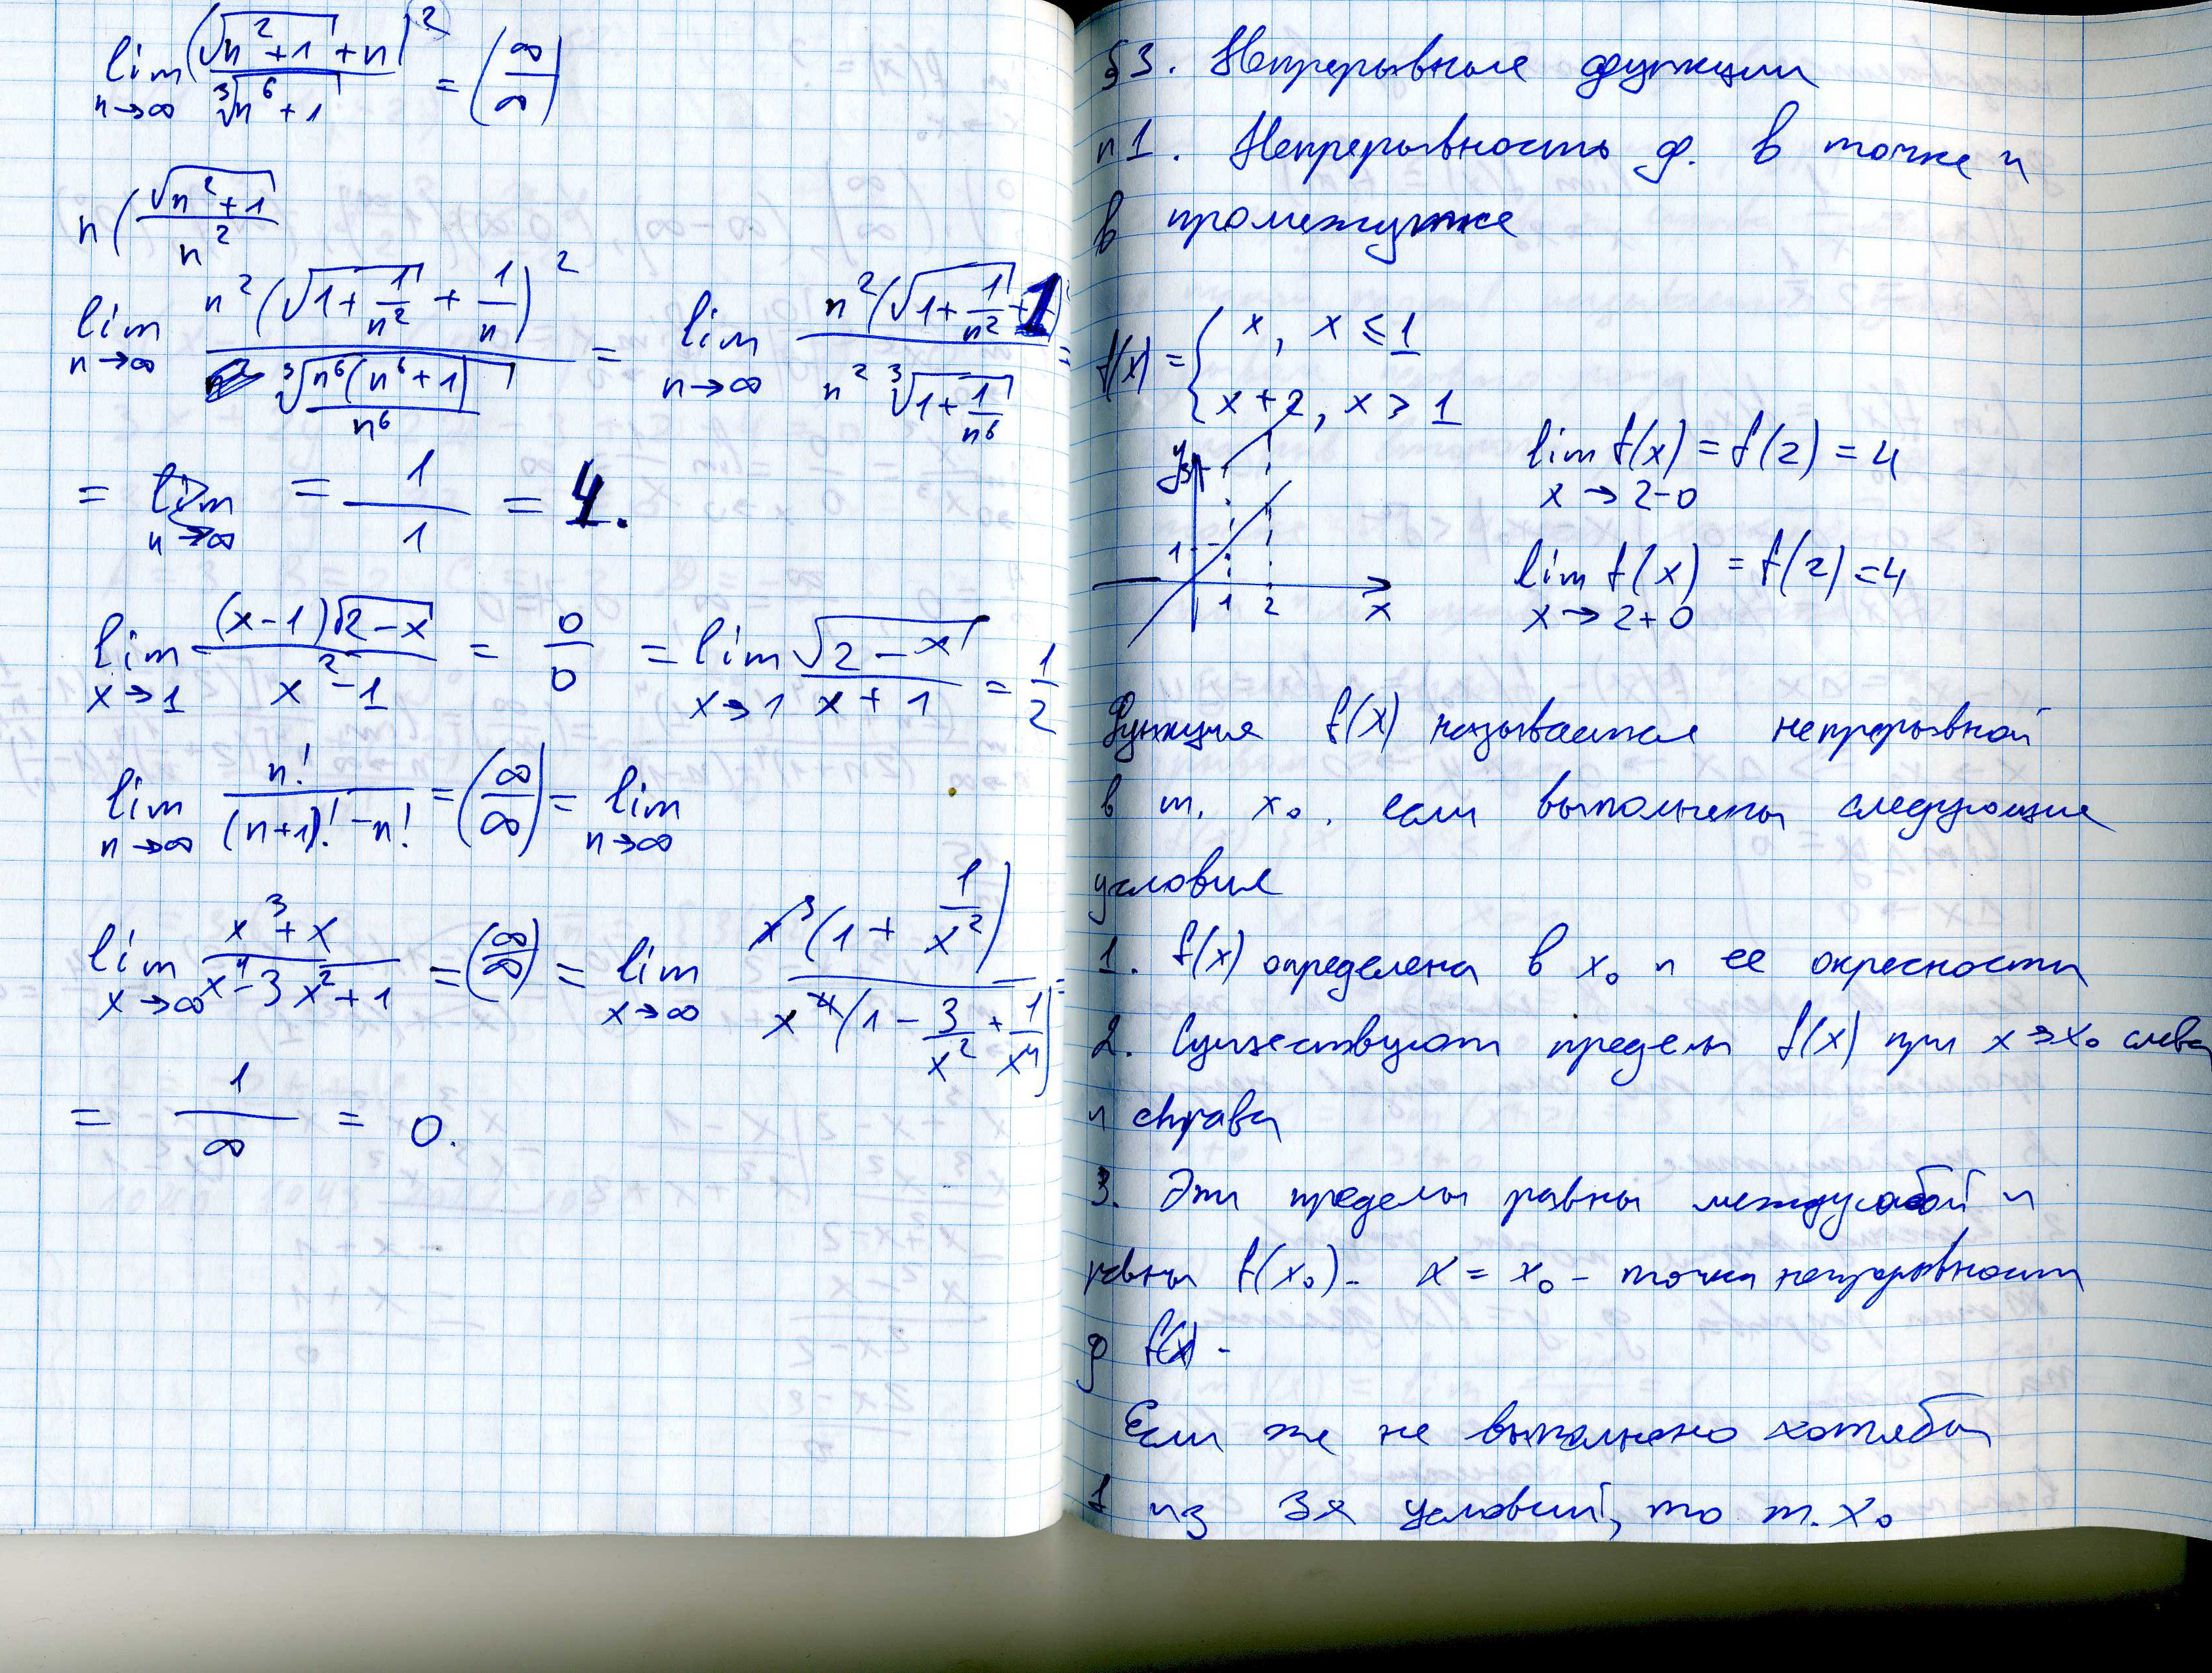 lim n→∞ (√(n²+1) + n)² / ³√(n⁶+1) = (∞/∞)
n(√(n²+1) / n²
lim n→∞ n²(√(1+1/n²) + 1/n)² / ³√(n⁶(n⁶+1)/n⁶) = lim n→∞ n²(√(1+1/n²)+1)² / n² ³√(1+1/n⁶) =
= lim n→∞ = 1/1 = 4.
lim x→1 (x-1)√(2-x) / x²-1 = 0/0 = lim x→1 √(2-x) / x+1 = 1/2
lim n→∞ n! / (n+1)! - n! = (∞/∞) = lim n→∞
lim x→∞ x³+x / x⁴-3x²+1 = (∞/∞) = lim x→∞ x³(1+1/x²) / x⁴(1-3/x²+1/x⁴) =
= 1/∞ = 0.
§3. Непрерывные функции
п1. Непрерывность ф. в точке и
в промежутке
f(x) = { x, x ≤ 1
x+2, x > 1
y
3
1
1 2 x
lim f(x) = f(2) = 4
x → 2-0
lim f(x) = f(2) = 4
x → 2+0
Функция f(x) называется непрерывной
в т. x₀. если выполнены следующие
условие
1. f(x) определена в x₀ и ее окресности
2. Существуют пределы f(x) при x→x₀ слева
и справа
3. Эти пределы равны междусобой и
равны f(x₀). x = x₀ - точка непрерывности
ф f(x).
Если же не выполнено хотябы
1 из 3х условий, то т. x₀